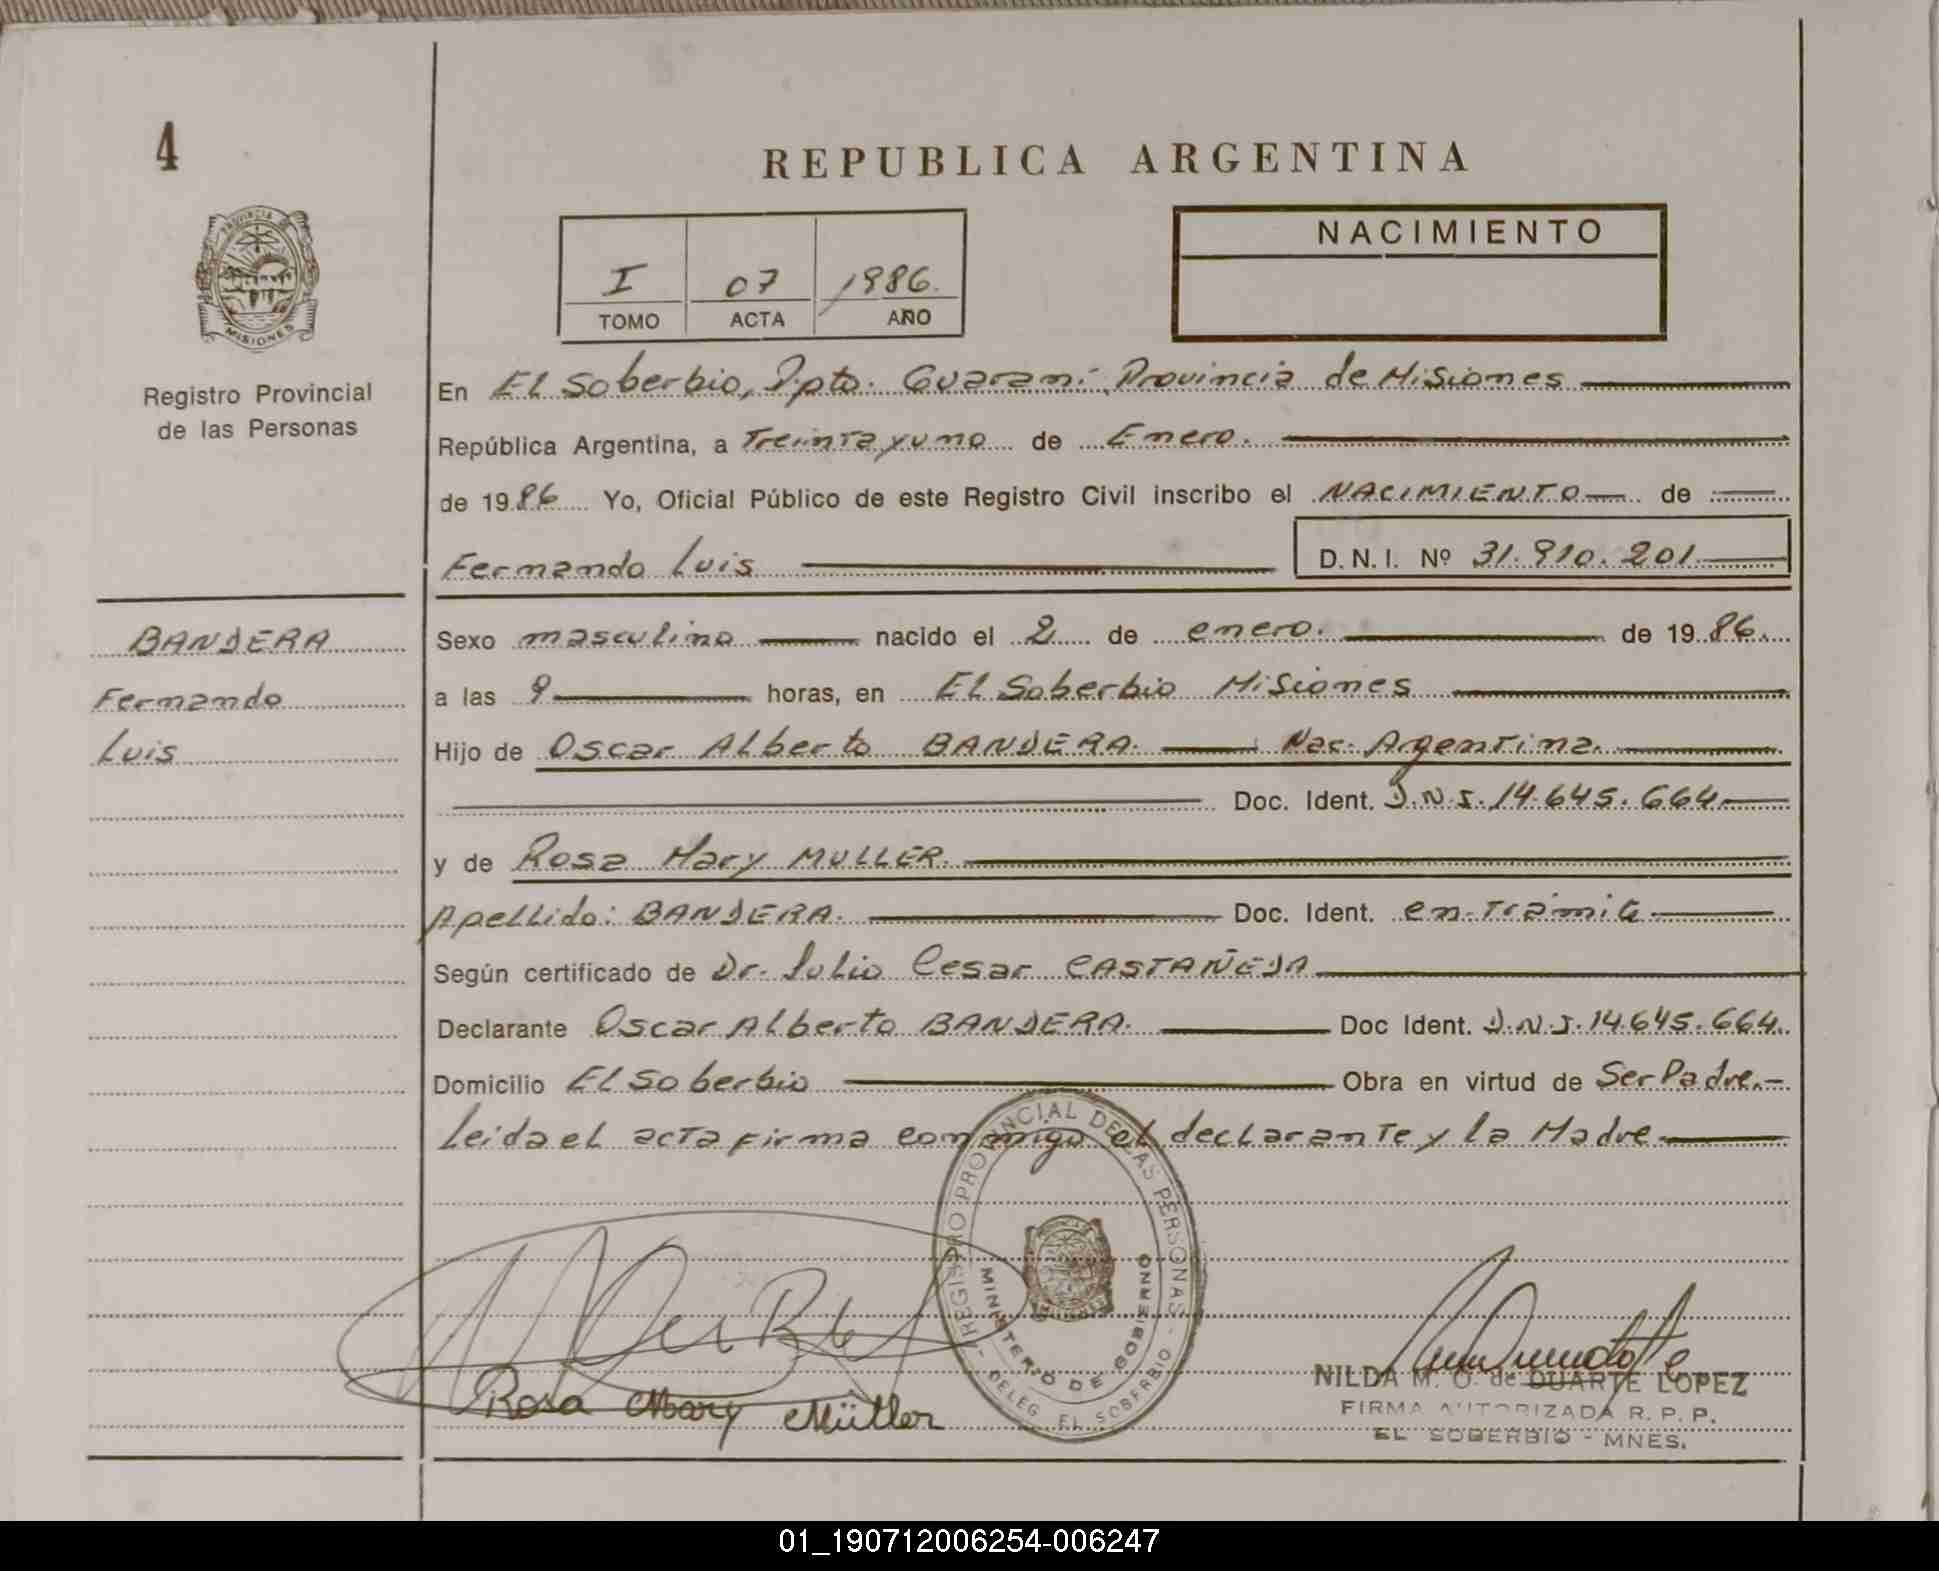 4
REPUBLICA ARGENTINA
PROVINCIA DE
MISIONES
Registro Provincial
de las Personas
I 07 1986.
TOMO ACTA AÑO
NACIMIENTO
En El Soberbio, Dpto. Guaraní Provincia de Misiones
República Argentina, a Treinta y uno de Enero.
de 1986 Yo, Oficial Público de este Registro Civil inscribo el NACIMIENTO de
Fernando Luis D.N.I. Nº 31.910.201
BANDERA
Fernando
Luis
Sexo masculino nacido el 2 de enero. de 1986.
a las 9 horas, en El Soberbio Misiones
Hijo de Oscar Alberto BANDERA. Nac. Argentina.
Doc. Ident. D.N.I. 14.645.664
y de Rosa Mary MULLER.
Apellido: BANDERA. Doc. Ident. en trámite
Según certificado de Dr. Julio Cesar CASTAÑEDA
Declarante Oscar Alberto BANDERA. Doc Ident. D.N.I. 14.645.664.
Domicilio El Soberbio Obra en virtud de Ser Padre.-
Leida el acta firma conmigo el declarante y la Madre
REGISTRO PROVINCIAL DE LAS PERSONAS - DELEG. EL SOBERBIO -
MINISTERIO DE GOBIERNO
Rosa Mary Müller
NILDA M. O. de DUARTE LOPEZ
FIRMA AUTORIZADA R. P. P.
EL SOBERBIO - MNES.
01_190712006254-006247